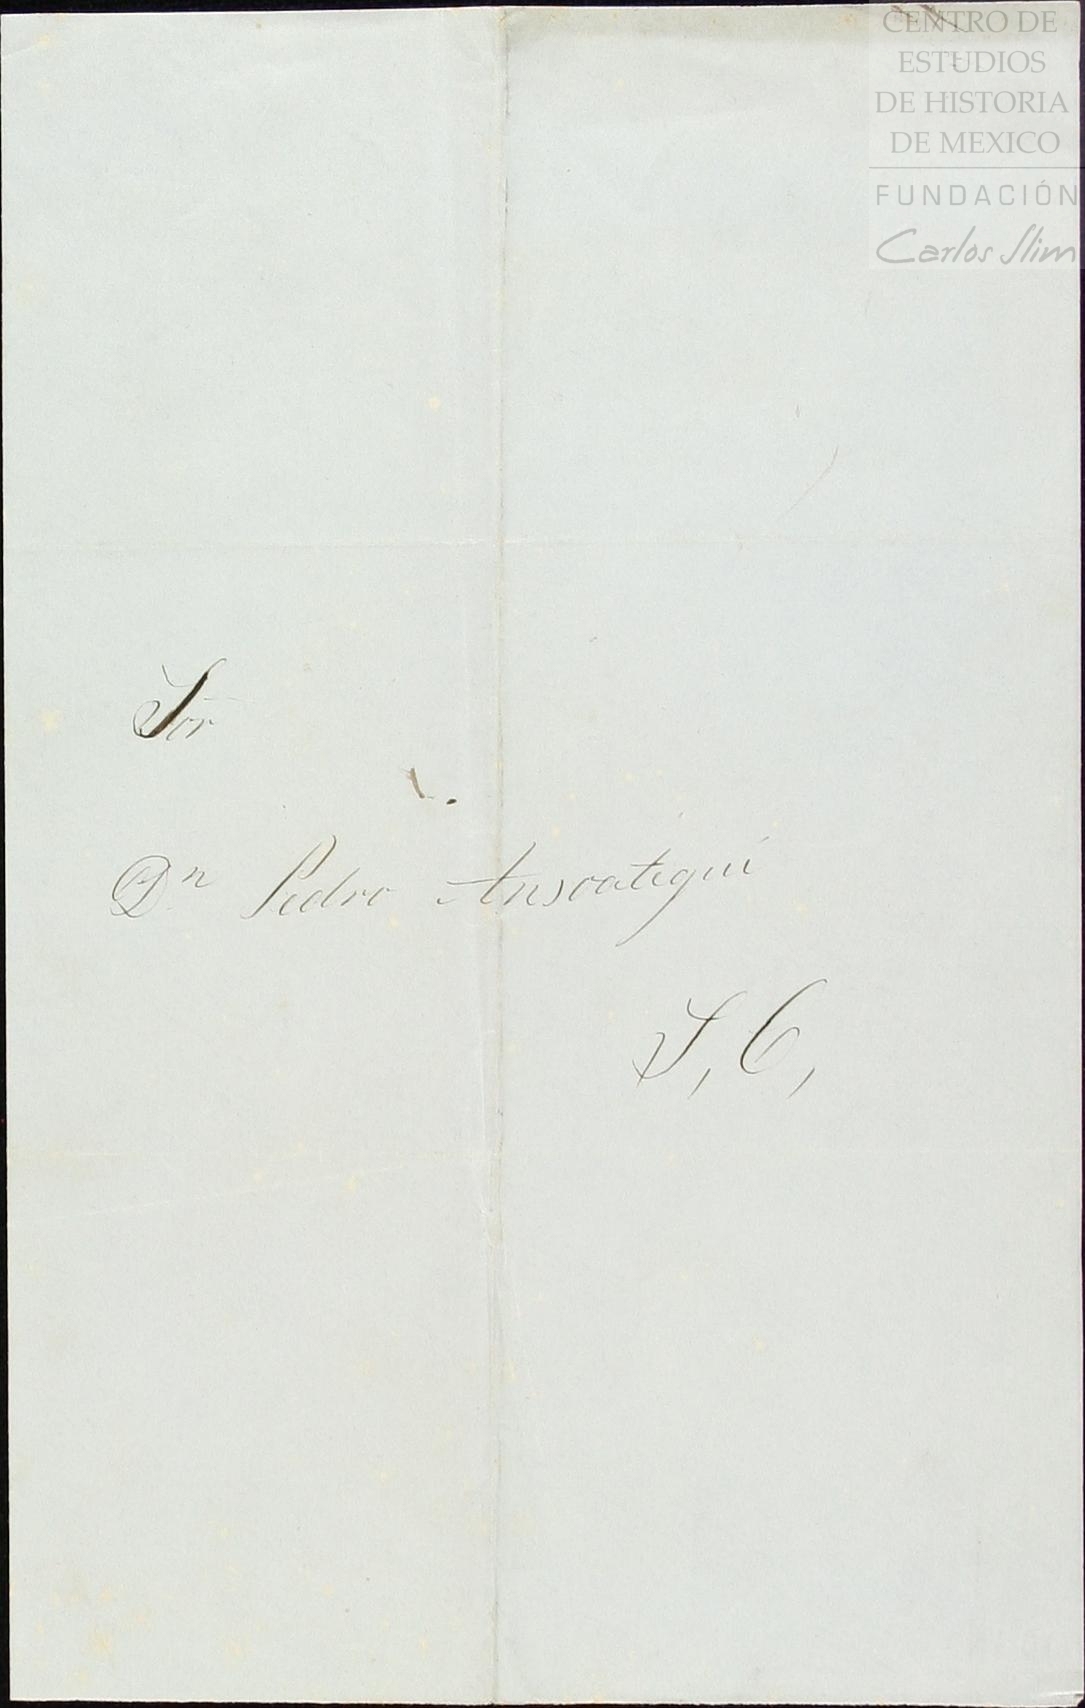 CENTRO DE
ESTUDIOS
DE HISTORIA
DE MEXICO
FUNDACIÓN
Carlos Slim
Sor
Dn Pedro Ansoategui
S, C,